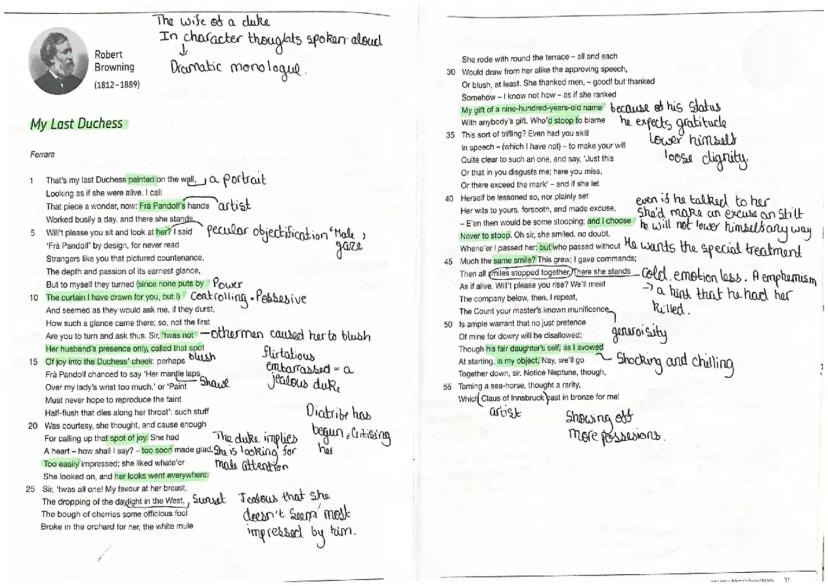 The wife of a duke
In character thoughts spoken aloud
↓
Dramatic monologue.
Robert
Browning
(1812–1889)
My Last Duchess
Ferrara
1 That's my last Duchess painted on the wall, a portrait
Looking as if she were alive. I call
That piece a wonder, now: Frà Pandolf's hands artist
Worked busily a day, and there she stands.
5 Will't please you sit and look at her? I said peculiar objectification 'Male gaze
'Frà Pandolf' by design, for never read
Strangers like you that pictured countenance,
The depth and passion of its earnest glance,
But to myself they turned (since none puts by Power
10 The curtain I have drawn for you, but I) Controlling. Possesive
And seemed as they would ask me, if they durst,
How such a glance came there; so, not the first
Are you to turn and ask thus. Sir, 'twas not - other men caused her to blush
Her husband's presence only, called that spot
15 Of joy into the Duchess' cheek: perhaps blush
Flirtatious
embarrassed = a
jealous duke
Frà Pandolf chanced to say 'Her mantle laps
Over my lady's wrist too much,' or 'Paint Shawl
Must never hope to reproduce the faint
Half-flush that dies along her throat': such stuff
20 Was courtesy, she thought, and cause enough
Diatribe has
begun, Critising
her
For calling up that spot of joy. She had
A heart – how shall I say? – too soon made glad,
Too easily impressed; she liked whate'er
She looked on, and her looks went everywhere.
The duke implies
She is looking for
male attention
25 Sir, 'twas all one! My favour at her breast,
The dropping of the daylight in the West, Sunset
The bough of cherries some officious fool
Broke in the orchard for her, the white mule
Jealous that she
doesn't seem most
impressed by him.
She rode with round the terrace – all and each
30 Would draw from her alike the approving speech,
Or blush, at least. She thanked men, – good! but thanked
Somehow – I know not how – as if she ranked
My gift of a nine-hundred-years-old name because of his status
With anybody's gift. Who'd stoop to blame he expects gratitude
35 This sort of trifling? Even had you skill lower himself
In speech – (which I have not) – to make your will loose dignity.
Quite clear to such an one, and say, 'Just this
Or that in you disgusts me; here you miss,
Or there exceed the mark' – and if she let
40 Herself be lessoned so, nor plainly set
Her wits to yours, forsooth, and made excuse,
– E'en then would be some stooping; and I choose
Never to stoop. Oh sir, she smiled, no doubt,
even if he talked to her
She'd make an excuse an still
he will not lower himself any way
Whene'er I passed her; but who passed without He wants the special treatment
45 Much the same smile? This grew; I gave commands;
Then all smiles stopped together. There she stands Cold, emotionless. A emphemism
As if alive. Will't please you rise? We'll meet → a hint that he had her
The company below, then. I repeat, killed.
The Count your master's known munificence
50 Is ample warrant that no just pretence generoisity
Of mine for dowry will be disallowed;
Though his fair daughter's self, as I avowed
At starting, is my object. Nay, we'll go Shocking and chilling
Together down, sir. Notice Neptune, though,
55 Taming a sea-horse, thought a rarity,
Which Claus of Innsbruck cast in bronze for me!
artist
Showing off
more possesions.